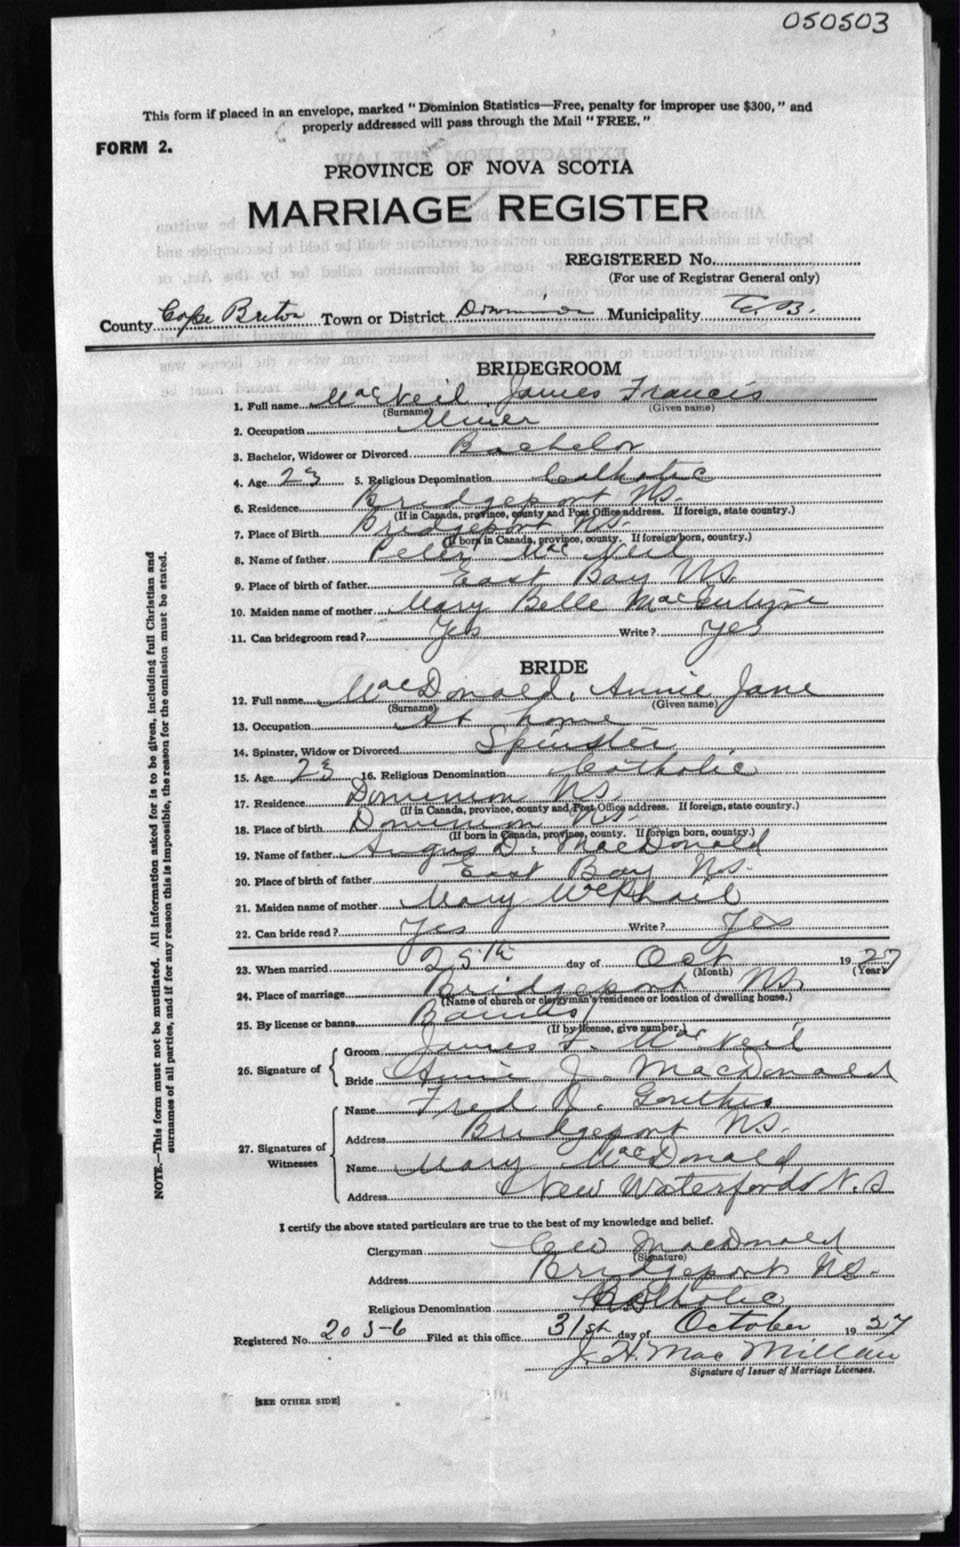 050503
This form if placed in an envelope, marked "Dominion Statistics—Free, penalty for improper use $300," and
properly addressed will pass through the Mail "FREE."
FORM 2.
PROVINCE OF NOVA SCOTIA
MARRIAGE REGISTER
REGISTERED No.
(For use of Registrar General only)
County Cape Breton Town or District Dominion Municipality C.B.
BRIDEGROOM
1. Full name MacNeil, James Francis
(Surname) (Given name)
2. Occupation Miner
3. Bachelor, Widower or Divorced Bachelor
4. Age 23 5. Religious Denomination Catholic
6. Residence Bridgeport NS.
(If in Canada, province, county and Post Office address. If foreign, state country.)
7. Place of Birth Bridgeport NS.
(If born in Canada, province, county. If foreign born, country.)
8. Name of father Peter MacNeil
9. Place of birth of father East Bay NS.
10. Maiden name of mother Mary Belle
11. Can bridegroom read? Yes Write? Yes
BRIDE
12. Full name MacDonald, Annie Jane
(Surname) (Given name)
13. Occupation At home
14. Spinster, Widow or Divorced Spinster
15. Age 23 16. Religious Denomination Catholic
17. Residence Dominion NS.
(If in Canada, province, county and Post Office address. If foreign, state country.)
18. Place of birth Dominion NS.
(If born in Canada, province, county. If foreign born, country.)
19. Name of father Angus D. MacDonald
20. Place of birth of father East Bay NS.
21. Maiden name of mother Mary McPhail
22. Can bride read? Yes Write? Yes
23. When married 25th day of Oct 1927
(Month) (Year)
24. Place of marriage Bridgeport NS.
(Name of church or clergyman's residence or location of dwelling house.)
25. By license or banns Banns
(If by license, give number.)
26. Signature of
Groom James F. MacNeil
Bride Annie J. MacDonald
27. Signatures of
Witnesses
Name Fred D.
Address Bridgeport N.S.
Name Mary MacDonald
Address New Waterford N.S
I certify the above stated particulars are true to the best of my knowledge and belief.
Clergyman MacDonald
(Signature)
Address Bridgeport NS.
Religious Denomination Catholic
Registered No. 20 5-6 Filed at this office 31st day of October 1927
J. H. MacMillan
Signature of Issuer of Marriage Licenses.
[SEE OTHER SIDE]
NOTE.—This form must not be mutilated. All information asked for is to be given, including full Christian and
surnames of all parties, and if for any reason this is impossible, the reason for the omission must be stated.